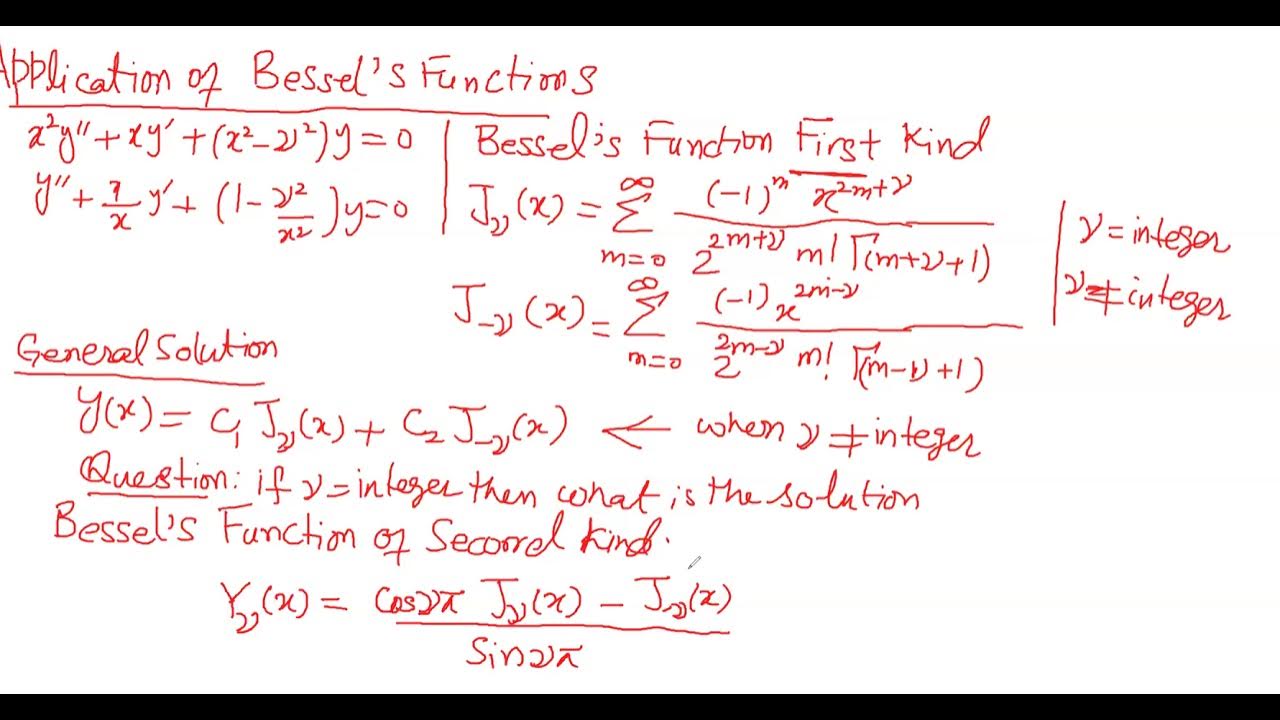 Application of Bessel's Functions
x²y'' + xy' + (x² - ν²)y = 0
y'' + 1/x y' + (1 - ν²/x²)y = 0
Bessel's Function First Kind
J_ν(x) = Σ_{m=0}^{∞} (-1)^m x^{2m+ν} / 2^{2m+ν} m! Γ(m+ν+1)
J_{-ν}(x) = Σ_{m=0}^{∞} (-1) x^{2m-ν} / 2^{2m-ν} m! Γ(m-ν+1)
ν = integer
ν ≠ integer
General Solution
y(x) = C₁ J_ν(x) + C₂ J_{-ν}(x) ← when ν ≠ integer
Question: if ν = integer then what is the solution
Bessel's Function of Second Kind.
Y_ν(x) = cosνπ J_ν(x) - J_{-ν}(x) / sinνπ